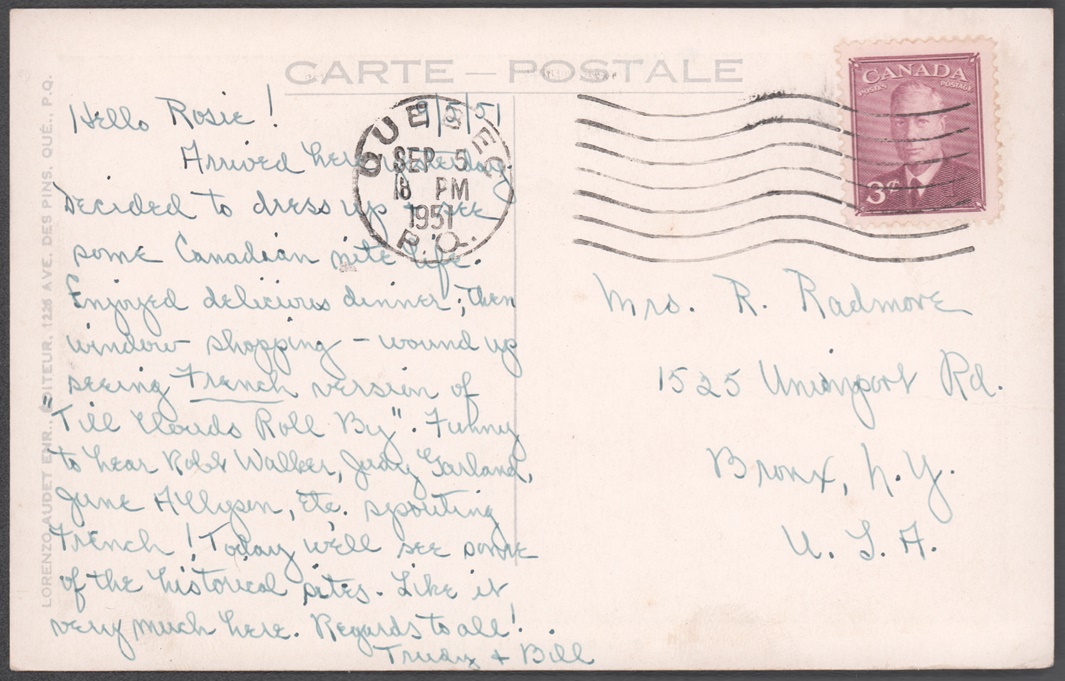 CARTE — POSTALE
CANADA
POSTES POSTAGE
3¢
QUEBEC
SEP 5
18 PM
1951
P.Q.
LORENZO AUDET ENR., ÉDITEUR, 1225 AVE. DES PINS, QUÉ., P.Q.
9/5/51
Hello Rosie!
Arrived here yesterday.
Decided to dress up + see
some Canadian nite life.
Enjoyed delicious dinner, then
window shopping - wound up
seeing French version of
Till Clouds Roll By". Funny
to hear Robt Walker, Judy Garland,
June Allyson, etc. spouting
French! Today we'll see some
of the historical sites. Like it
very much here. Regards to all!
Trudy + Bill
Mrs. R. Radmore
1525 Unionport Rd.
Bronx, N.Y.
U.S.A.